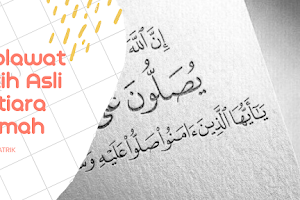 olawat
ih Asli
tiara
mah
ATRIK
إِنَّ ٱللَّهَ
يُصَلُّونَ عَلَى
يَٰٓأَيُّهَا ٱلَّذِينَ ءَامَنُوا۟ صَلُّوا۟ عَلَيْهِ